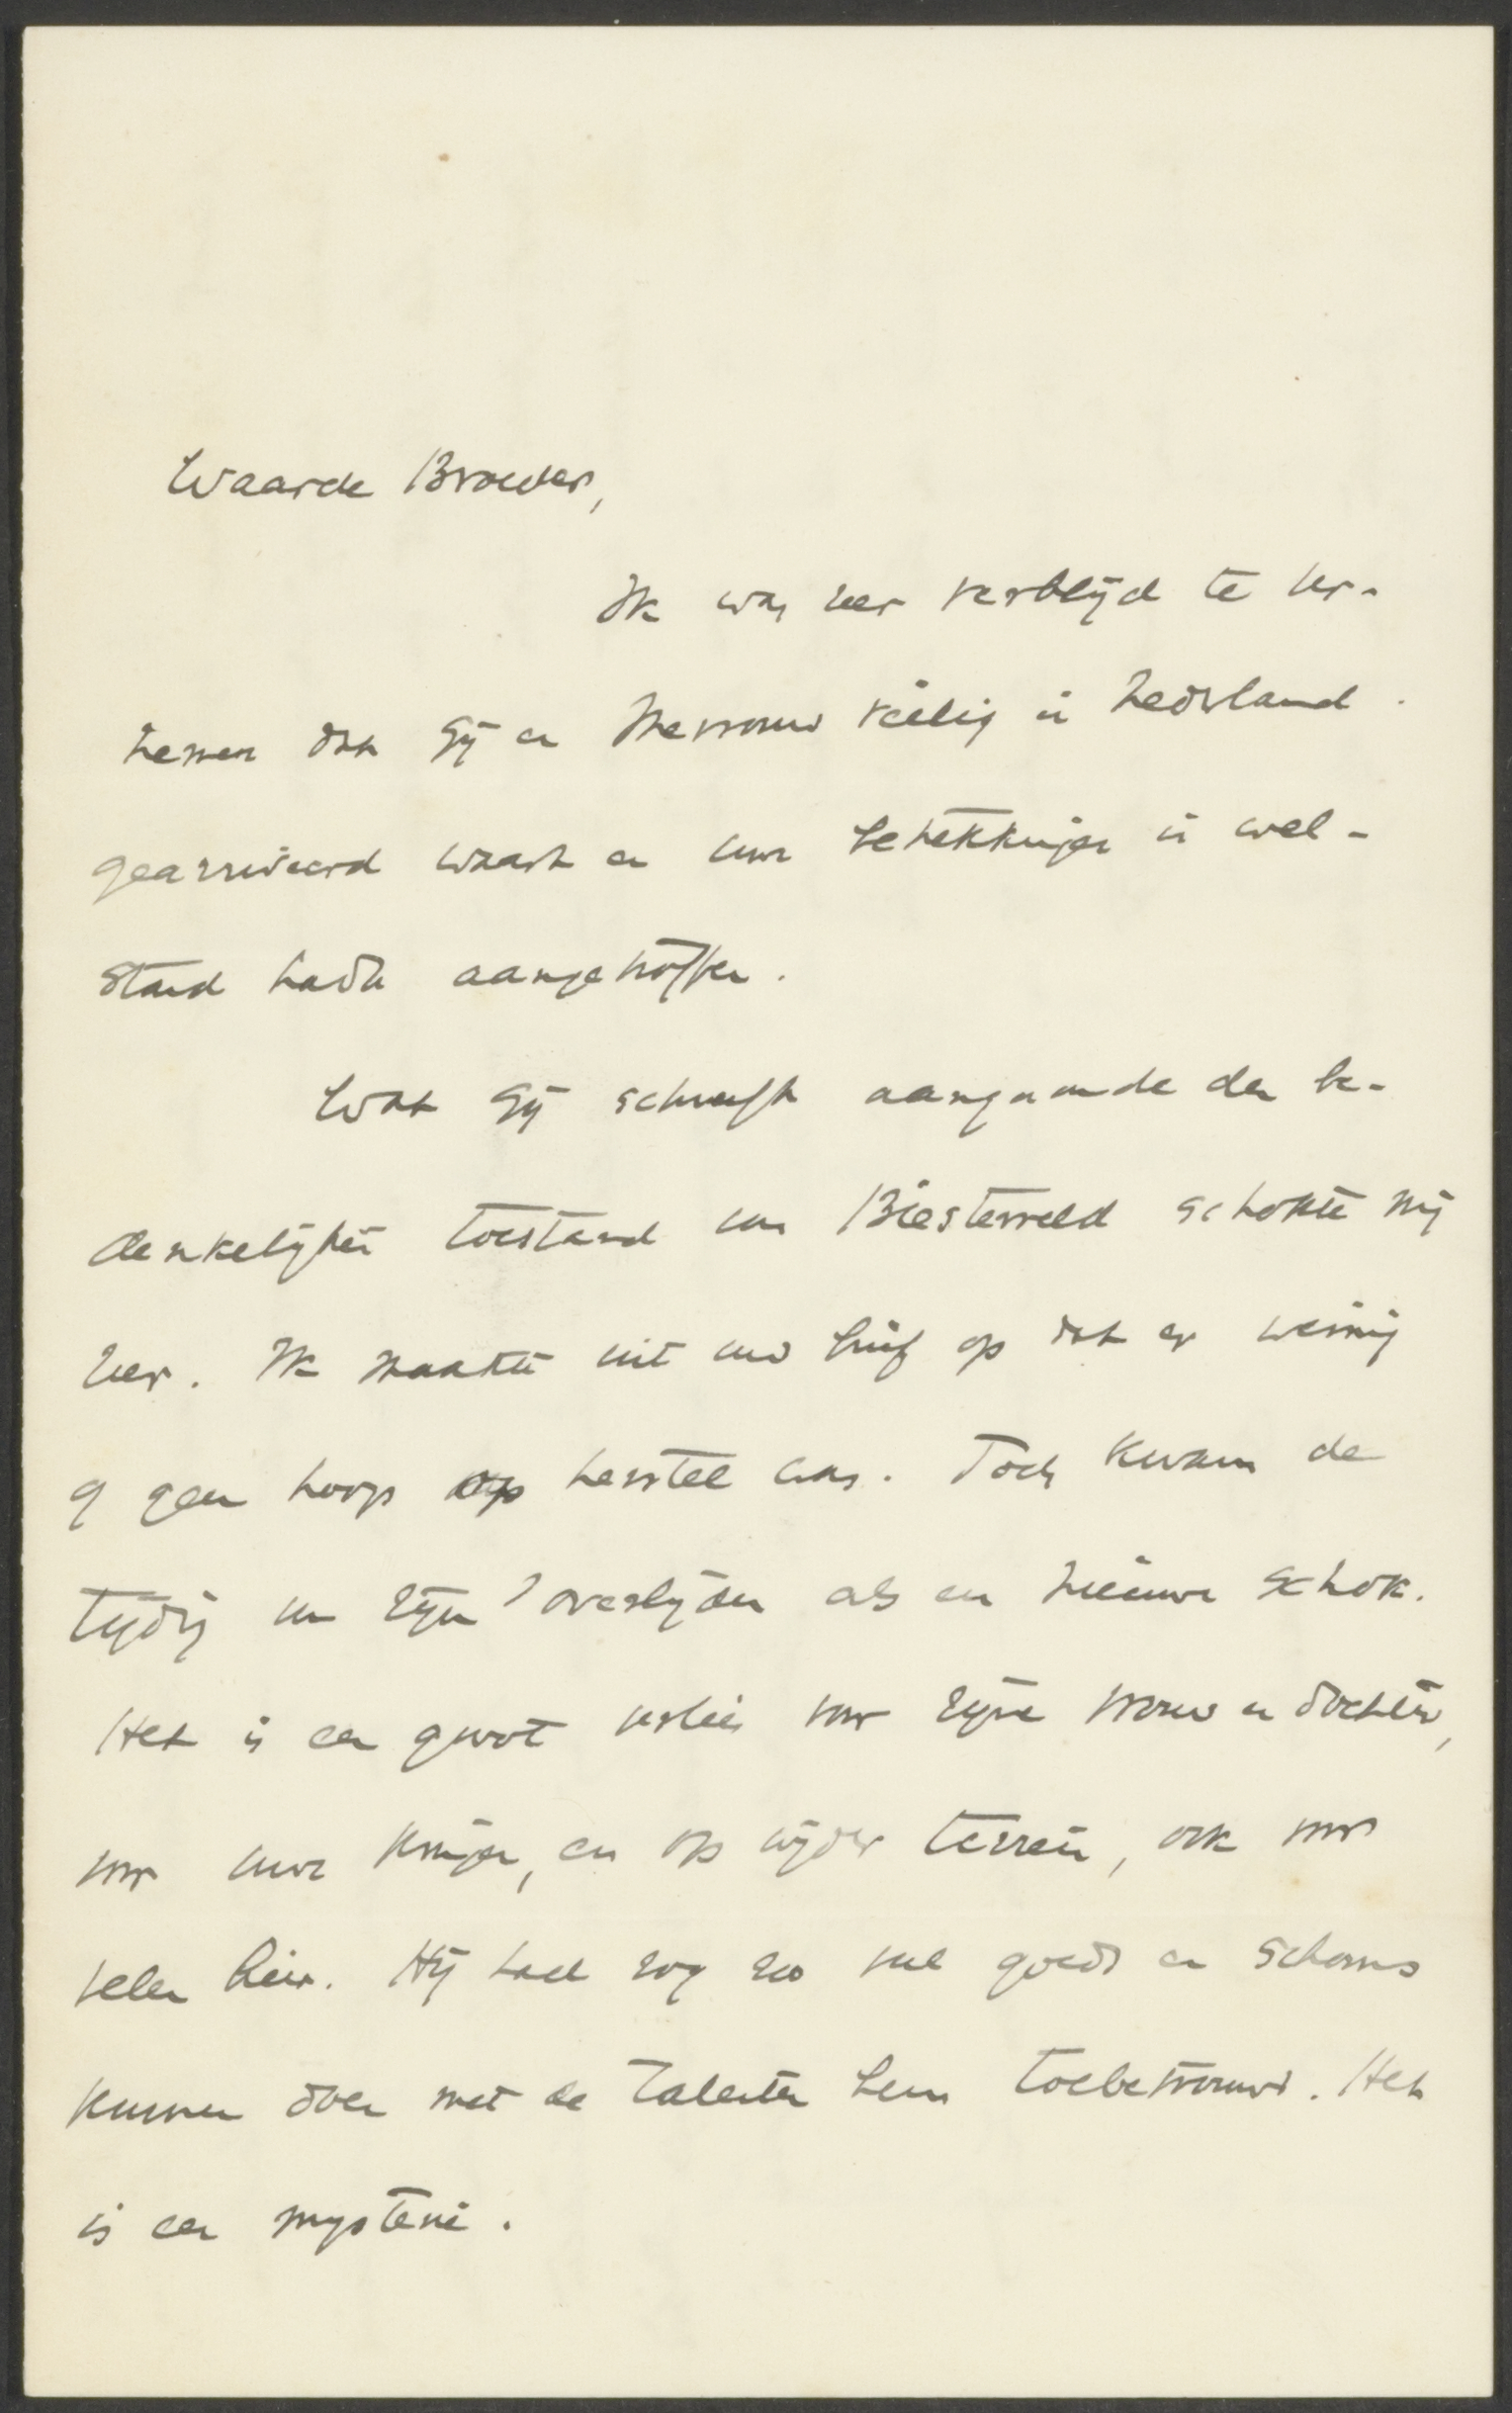 Waarde Broeder,
Ik was zeer verblijd te ver-
nemen dat Gij en Mevrouw veilig in Nederland
gearriveerd waart en uwe betrekkingen in wel-
stand hadt aangetroffen.
Wat Gij schreeft aangaande den be-
denkelijken toestand van Biesterveld schokte mij
zeer. Ik maakte uit uw brief op dat er weinig
of geen hoop op herstel was. Toch kwam de
tijding van zijn overlijden als een nieuwe schok.
Het is een groot verlies voor zijne vrouw en dochter,
voor uwe kringen, en op wijder terrein, ook voor
velen hier. Hij had nog zoo veel goeds en schoons
kunnen doen met de talenten hem toebetrouwd. Het
is een mysterie.